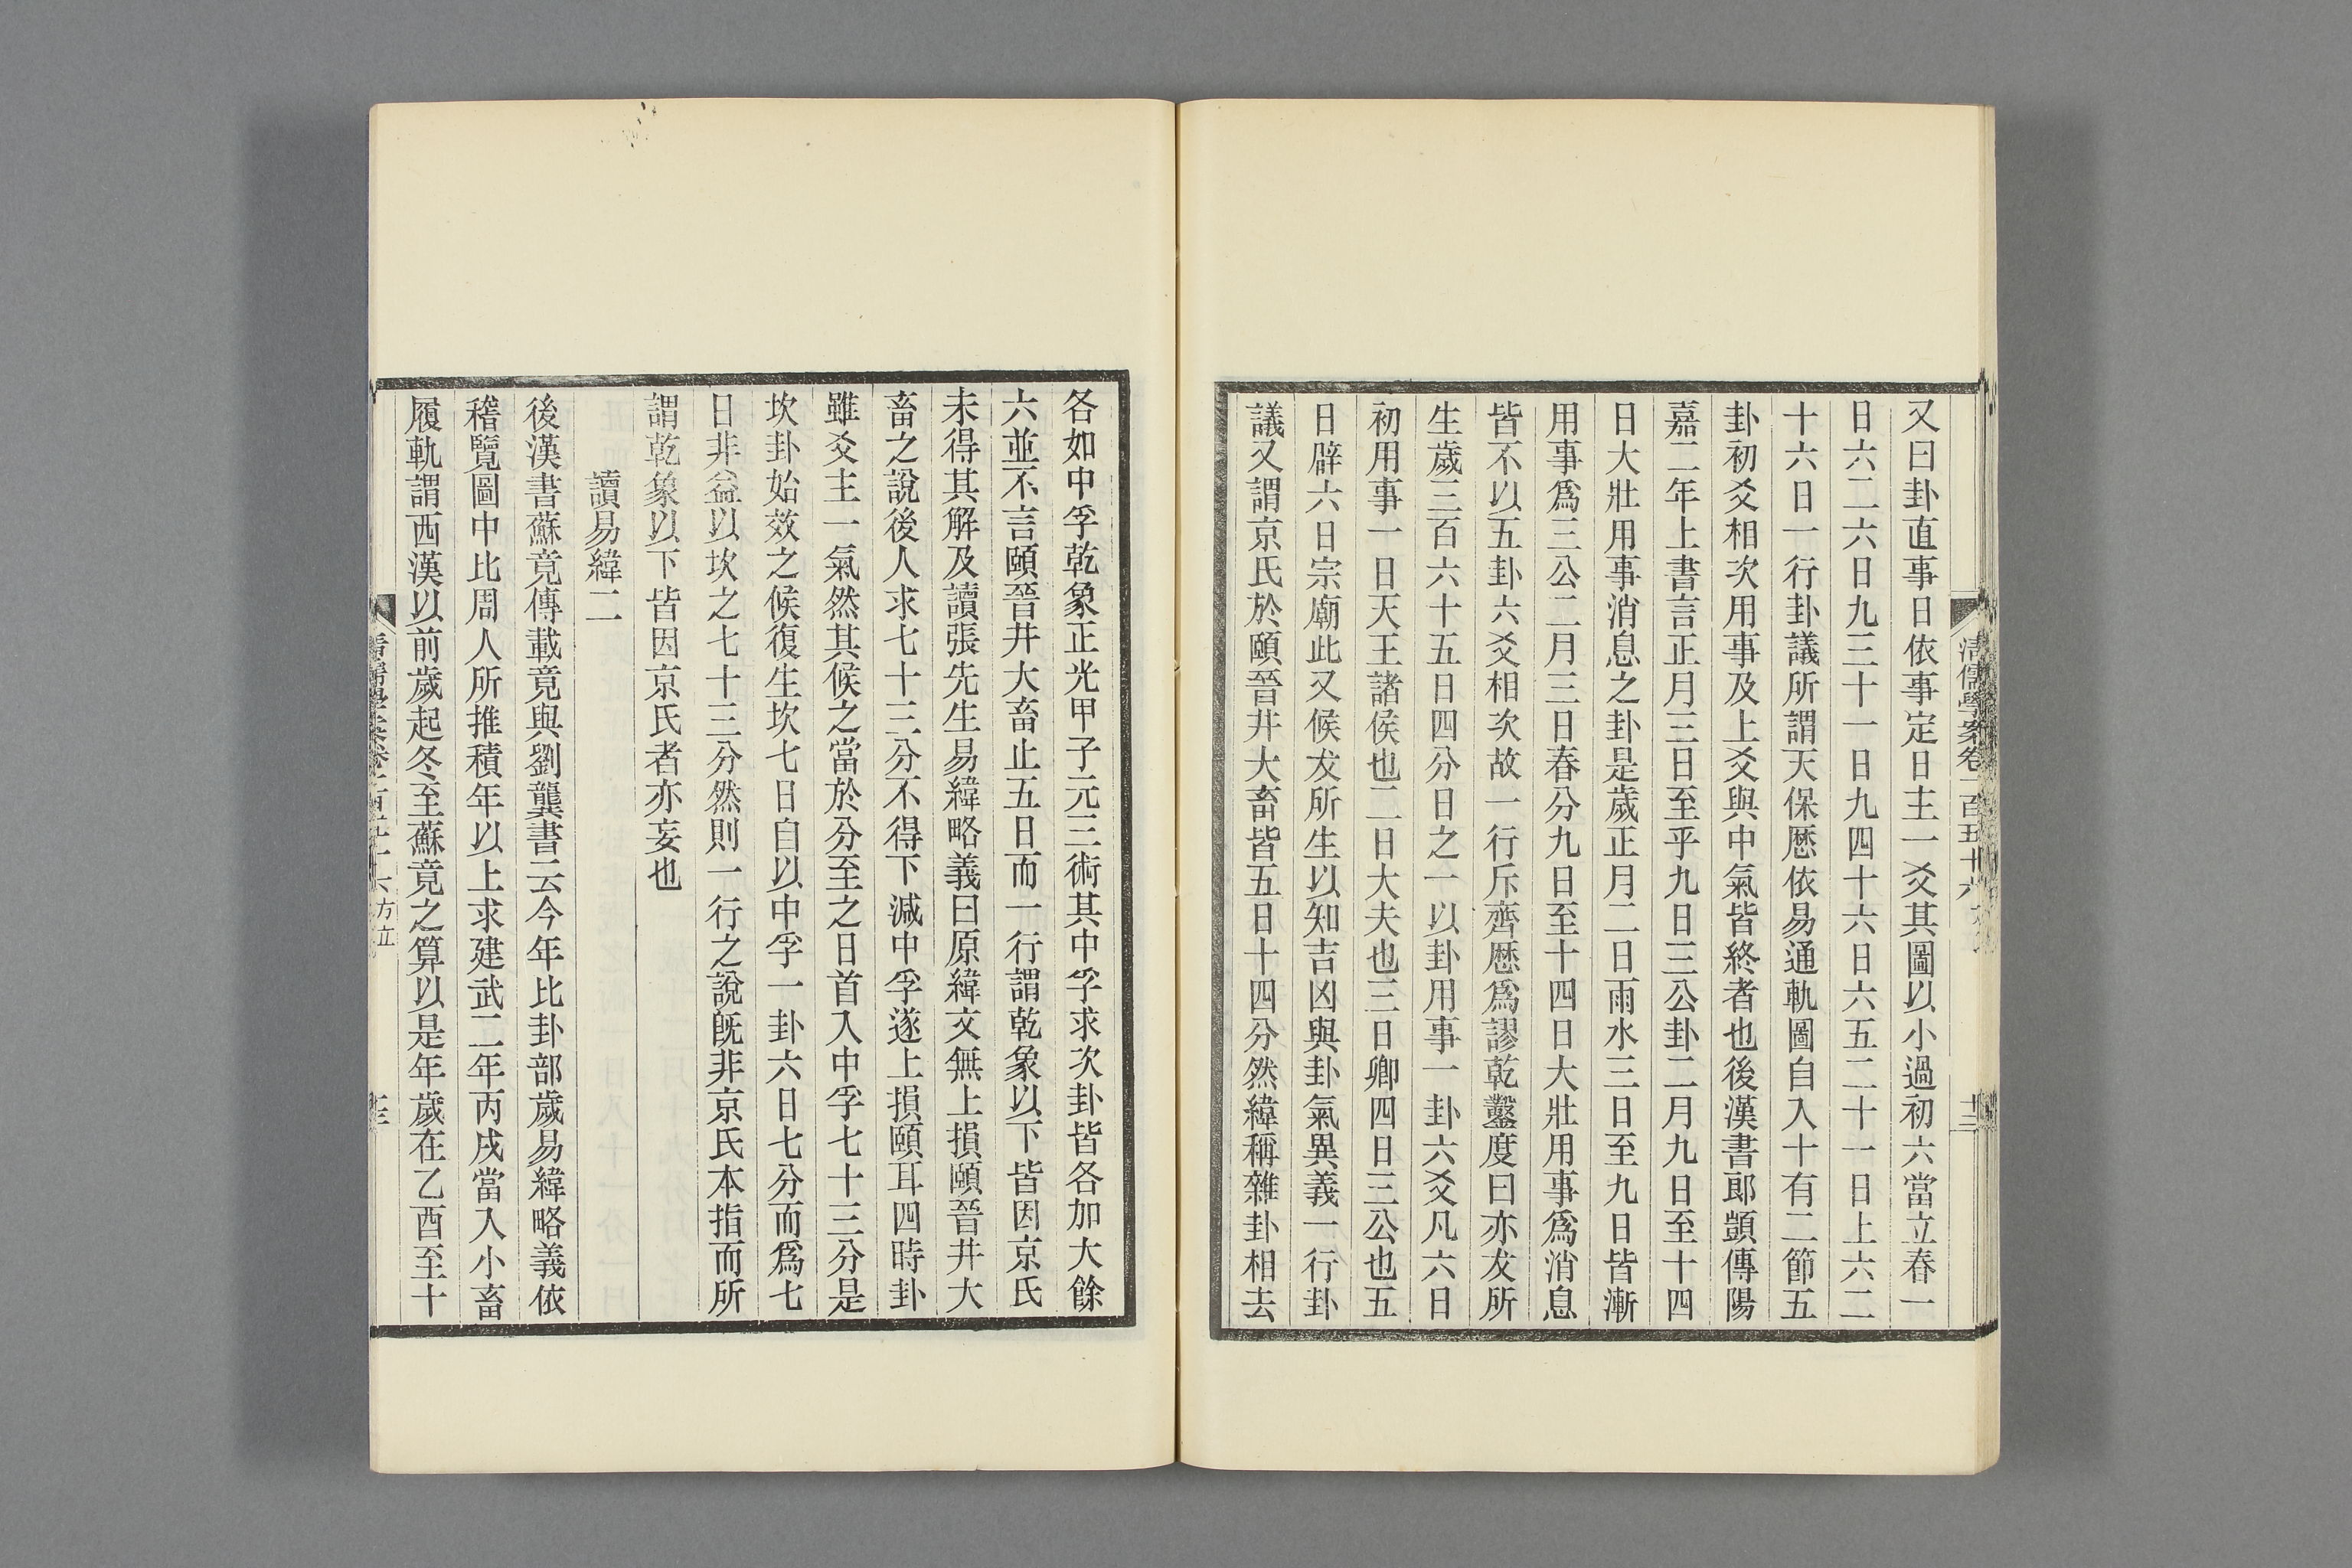 清儒學案卷一百五十六
十三
又曰卦直事日依事定日主一爻其圖以小過初六當立春一
日六二六日九三十一日九四十六日六五二十一日上六二
十六日一行卦議所謂天保厯依易通軌圖自入十有二節五
卦初爻相次用事及上爻與中氣皆終者也後漢書郎顗傳陽
嘉二年上書言正月三日至乎九日三公卦二月九日至十四
日大壯用事消息之卦是歲正月二日雨水三日至九日皆漸
用事爲三公二月三日春分九日至十四日大壯用事爲消息
皆不以五卦六爻相次故一行斥齊厯爲謬乾鑿度曰亦犮所
生歲三百六十五日四分日之一以卦用事一卦六爻凡六日
初用事一日天王諸侯也二日大夫也三日卿四日三公也五
日辟六日宗廟此又候犮所生以知吉凶與卦氣異義一行卦
議又謂京氏於頤晉井大畜皆五日十四分然緯稱雜卦相去
各如中孚乾象正光甲子元三術其中孚求次卦皆各加大餘
六並不言頤晉井大畜止五日而一行謂乾象以下皆因京氏
未得其解及讀張先生易緯略義曰原緯文無上損頤晉井大
畜之說後人求七十三分不得下減中孚遂上損頤耳四時卦
雖爻主一氣然其候之當於分至之日首入中孚七十三分是
坎卦始效之候復生坎七日自以中孚一卦六日七分而爲七
日非益以坎之七十三分然則一行之說旣非京氏本指而所
謂乾象以下皆因京氏者亦妄也
讀易緯二
後漢書蘇竟傳載竟與劉龔書云今年比卦部歲易緯略義依
稽覽圖中比周人所推積年以上求建武二年丙戌當入小畜
履軌謂西漢以前歲起冬至蘇竟之算以是年歲在乙酉至十
方立